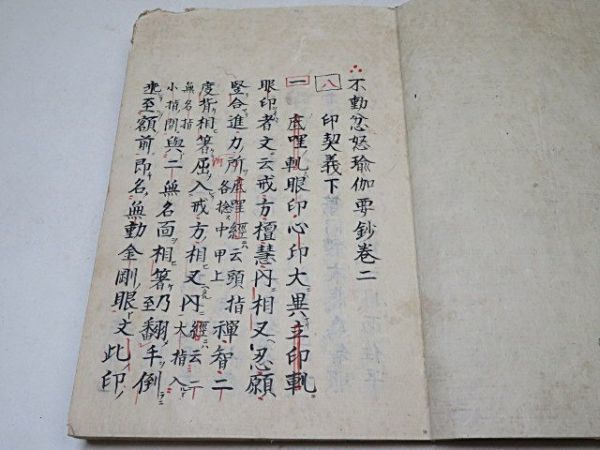 不動忿怒瑜伽要鈔巻二
八 印契義下
一 底哩軌眼印心印大異立印軌
眼印者文云戒方檀慧内相叉忍願
竪合進力所各捻中甲上底哩經云頭指禪智二
度背相著屈入戒方相叉内經云二大指入
無名指小指間與二無名面相著乃至翻手倒
垂至額前即名無動金剛眼文此印